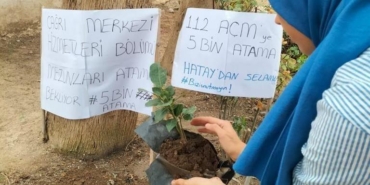 ÇAĞRI MERKEZİ
HİZMETLERİ BÖLÜMÜ
MEZUNLARI ATAMA
BEKLİYOR #5 BİN
ATAMA
112 ACM'ye
5 BİN ATAMA
HATAY'DAN SELAM